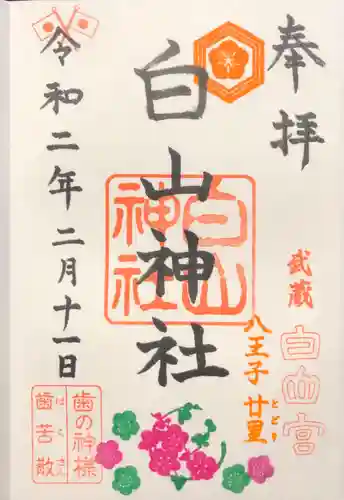 奉拝
武蔵
白山宮
八王子 廿里
とどり
白山神社
白山神社
令和二年二月十一日
歯の神様
歯苦散
はくさん